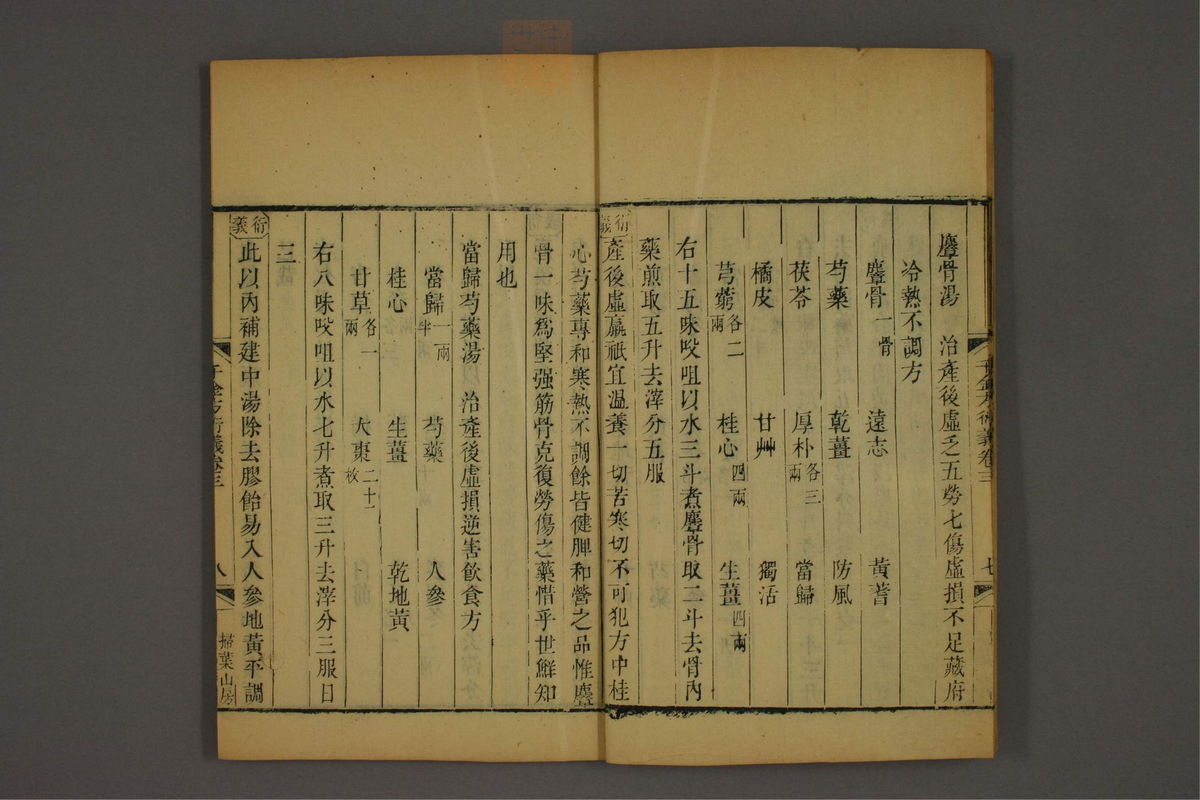 麞骨湯　治產後虛乏五勞七傷虛損不足藏府
冷熱不調方
麞骨一骨　遠志　黃蓍
芍藥　乾薑　防風
茯苓　厚朴各三兩　當歸
橘皮　甘艸　獨活
芎藭各二兩　桂心四兩　生薑四兩
右十五味㕮咀以水三斗煮麞骨取二斗去骨內
藥煎取五升去滓分五服
衍義　產後虛羸祇宜溫養一切苦寒切不可犯方中桂
心芍藥專和寒熱不調餘皆健脾和營之品惟麞
骨一味爲堅强筋骨克復勞傷之藥惜乎世鮮知
用也
當歸芍藥湯　治產後虛損逆害飲食方
當歸一兩半　芍藥　人參
桂心　生薑　乾地黃
甘草各一兩　大棗二十枚
右八味㕮咀以水七升煮取三升去滓分三服日
三
衍義　此以內補建中湯除去膠飴易入人參地黃平調
千金方衍義卷三　七
千金方衍義卷三　八　掃葉山房